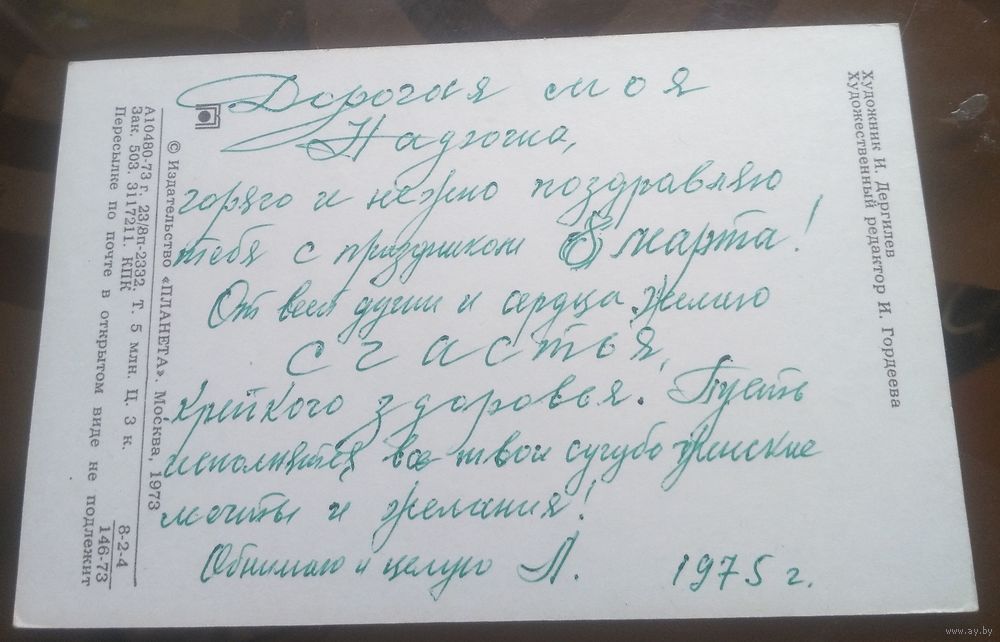 Дорогая моя
Надюша,
горячо и нежно поздравляю
тебя с праздником 8 марта!
От всей души и сердца желаю
счастья,
крепкого здоровья. Пусть
исполнятся все твои сугубо женские
мечты и желания!
Обнимаю и целую Л. 1975 г.
Художник И. Дергилев
Художественный редактор И. Гордеева
© Издательство «ПЛАНЕТА». Москва, 1973
А10480-73 г. 23/8п-2332. Т. 5 млн. Ц. 3 к.
Зак. 503. 3117211. КПК
Пересылке по почте в открытом виде не подлежит
8-2-4
146-73
www.ay.by